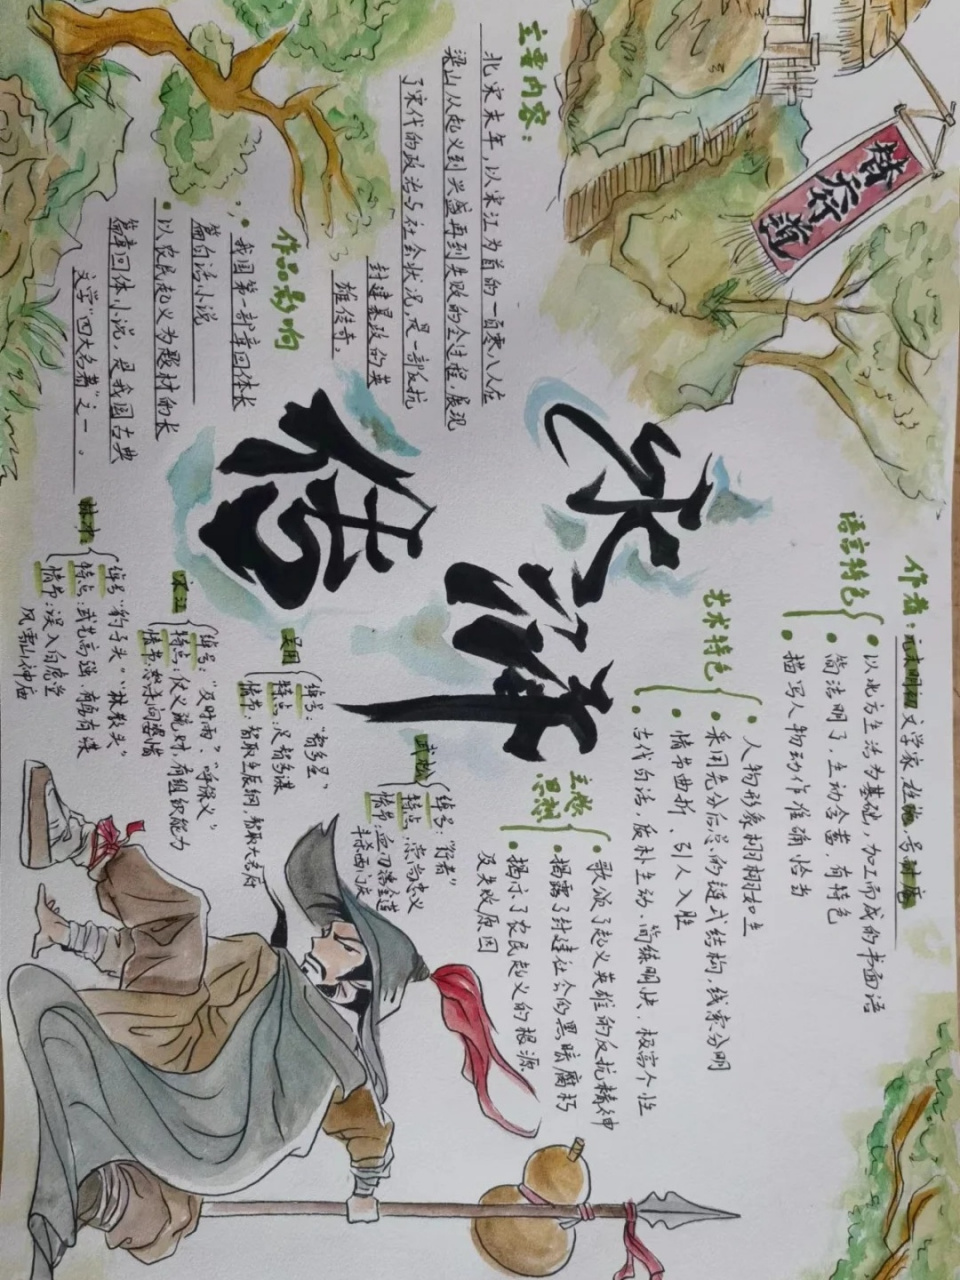 水浒传
替天行道
主要内容：
北宋末年，以宋江为首的一百零八人在
梁山从起义到兴盛再到失败的全过程，展现
了宋代的政治与社会状况，是一部反抗
封建暴政的英
雄传奇。
作品影响
我国第一部章回体长
篇白话小说
以农民起义为题材的长
篇章回体小说，是我国古典
文学“四大名著”之一。
作者：元末明初文学家施
语言特色
以北方生活为基础，加工而成的书面语
简洁明了，生动含蓄，有特色
描写人物动作准确恰当
艺术特色
人物形象栩栩如生
采用先分后总的链式结构，线索分明
情节曲折、引人入胜
古代白话，质朴生动、简练明快、极富个性
主要
思想
歌颂了起义英雄的反抗精神
揭露了封建社会的黑暗腐朽
揭示了农民起义的根源
及失败原因
武松
绰号：“行者”
特点：崇尚忠义
情节：血刃潘金莲
斗杀西门庆
吴用
绰号：“智多星”
特点：足智多谋
情节：智取生辰纲，智取大名府
宋江
绰号：“及时雨”、“呼保义”
特点：仗义疏财，有组织能力
情节：
林冲：
绰号“豹子头”“林教头”
特点：武艺高强，有勇有谋
情节：误入白虎堂
风雪山神庙